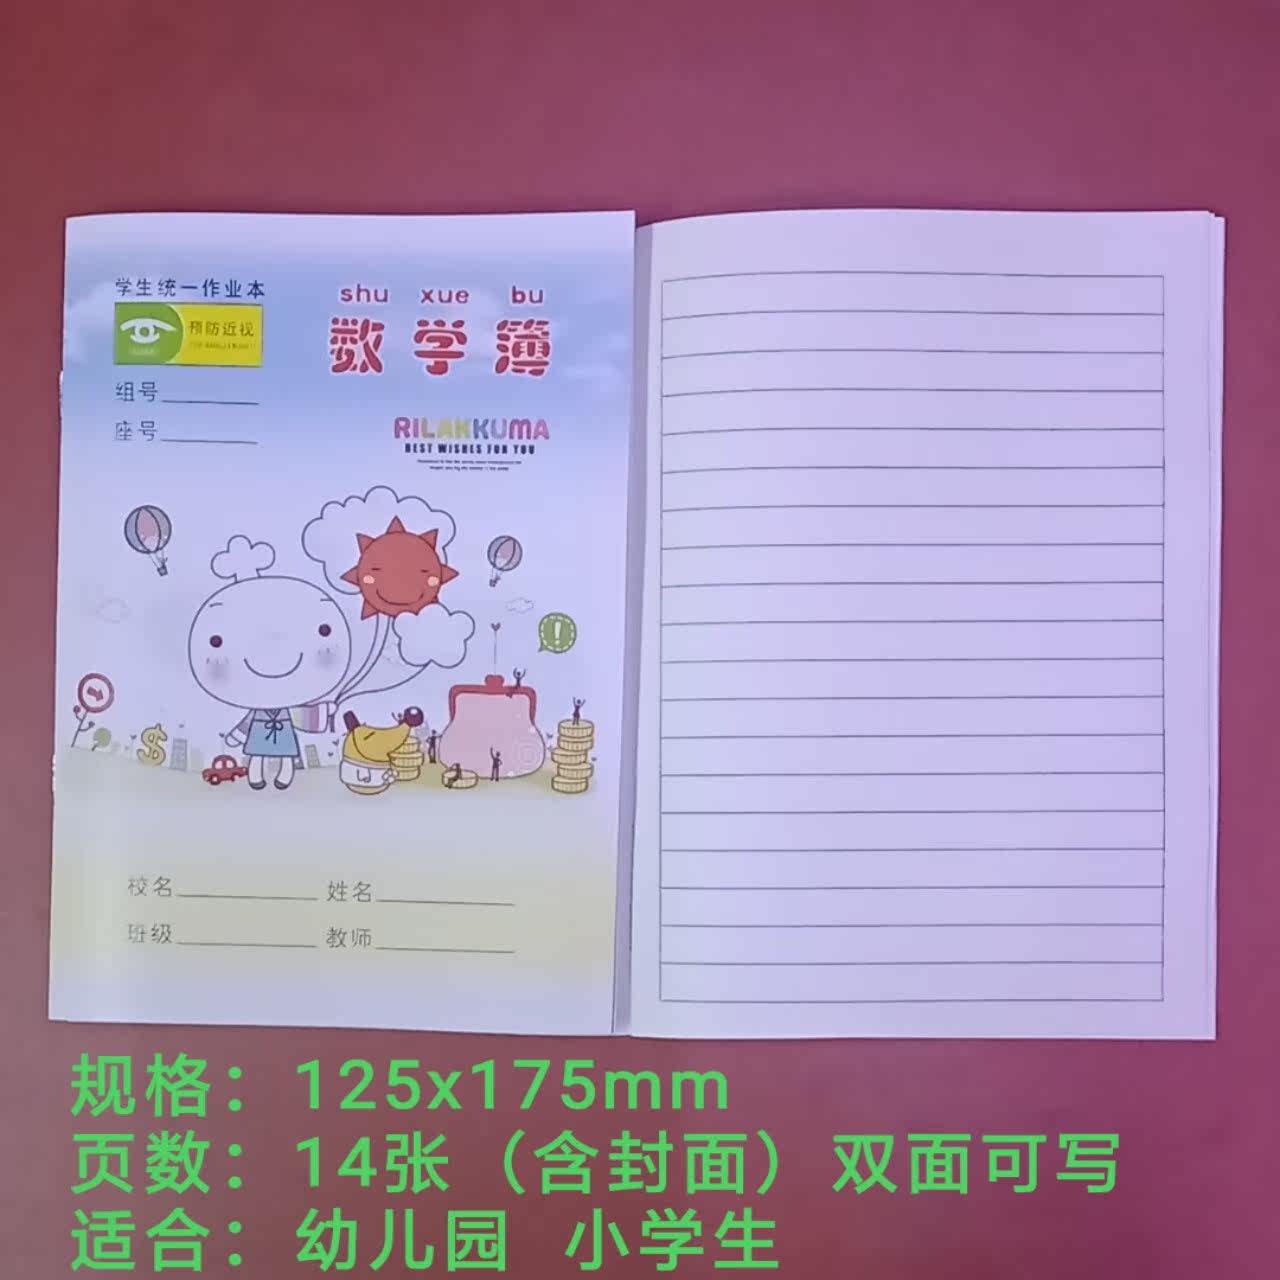 学生统一作业本
预防近视
组号
座号
shu xue bu
数学簿
RILAKKUMA
BEST WISHES FOR YOU
校名 姓名
班级 教师
规格：125x175mm
页数：14张（含封面）双面可写
适合：幼儿园 小学生